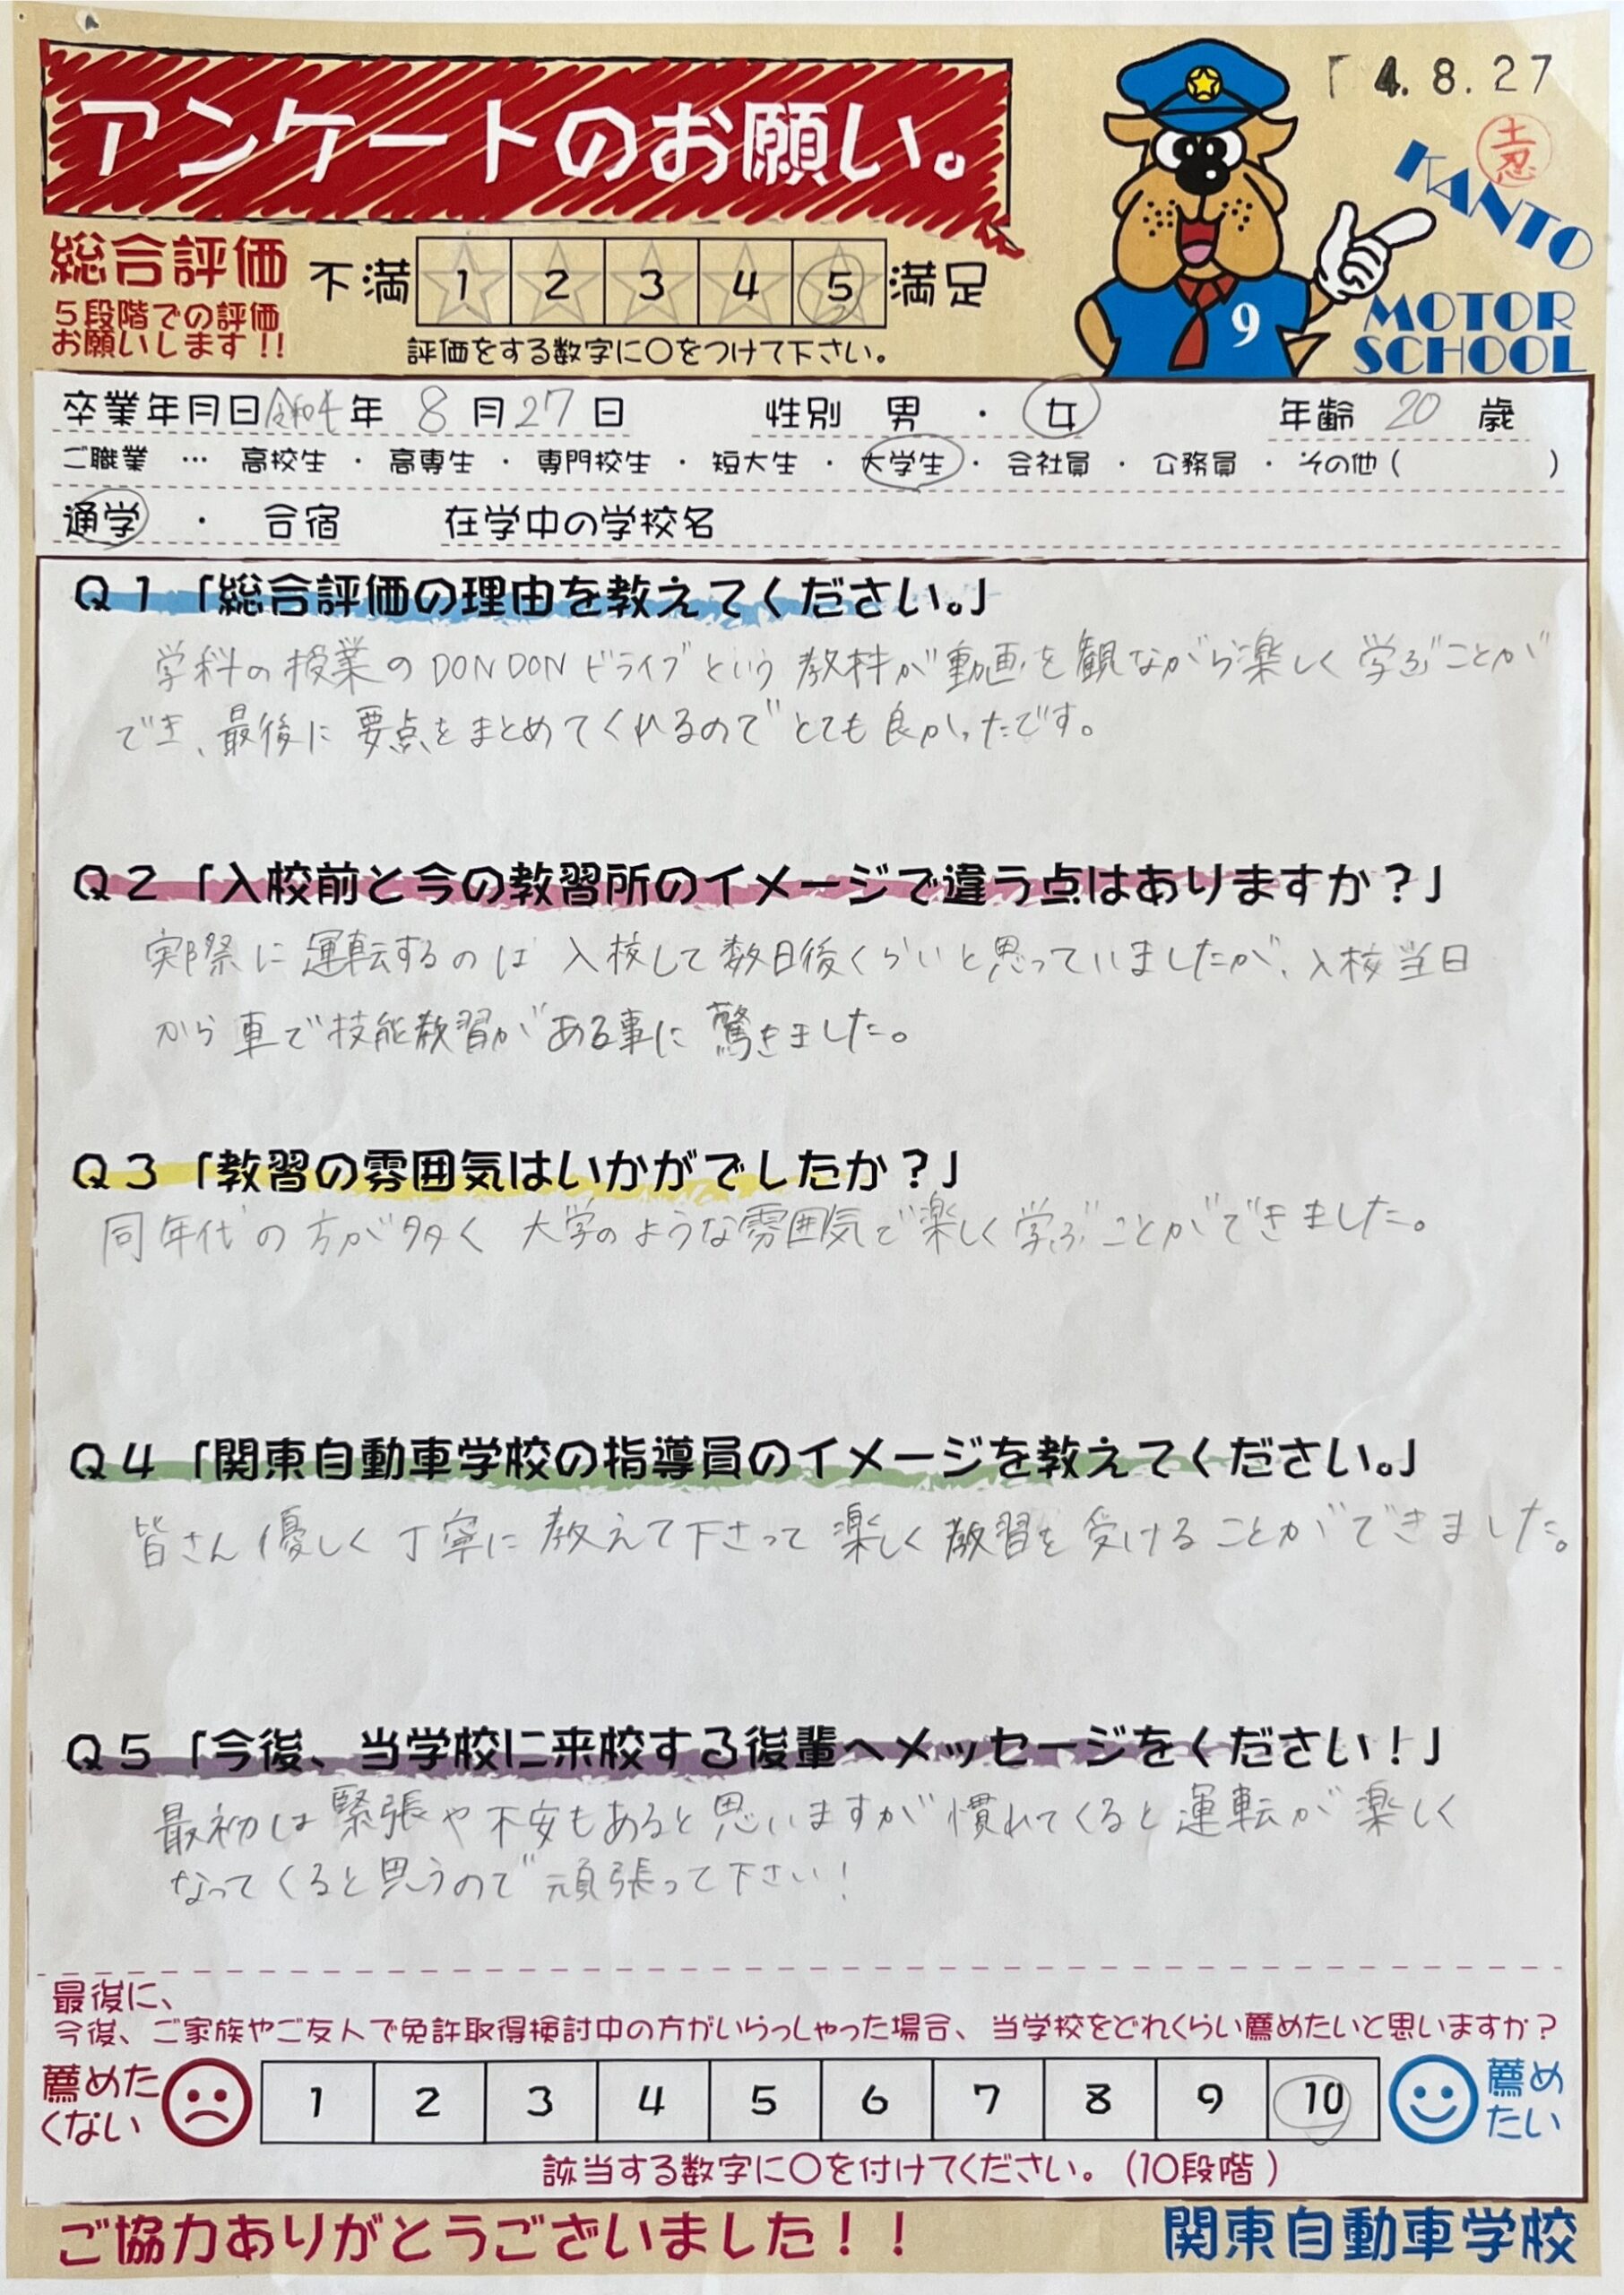 「 4. 8. 27
アンケートのお願い。
土忍
KANTO
MOTOR
SCHOOL
9
総合評価
5段階での評価
お願いします!!
不満 1 2 3 4 5 満足
評価をする数字に○をつけて下さい。
卒業年月日 令和4年 8月27日 性別 男 ・ 女 年齢 20 歳
ご職業 … 高校生 ・ 高専生 ・ 専門校生 ・ 短大生 ・ 大学生 ・ 会社員 ・ 公務員 ・ その他 ( )
通学 ・ 合宿 在学中の学校名
Q1「総合評価の理由を教えてください。」
学科の授業のDONDONドライブという教材が動画を観ながら楽しく学ぶことが
でき、最後に要点をまとめてくれるのでとても良かったです。
Q2「入校前と今の教習所のイメージで違う点はありますか?」
実際に運転するのは入校して数日後くらいと思っていましたが、入校当日
から車で技能教習がある事に驚きました。
Q3「教習の雰囲気はいかがでしたか?」
同年代の方が多く大学のような雰囲気で楽しく学ぶことができました。
Q4「関東自動車学校の指導員のイメージを教えてください。」
皆さん優しく丁寧に教えて下さって楽しく教習を受けることができました。
Q5「今後、当学校に来校する後輩へメッセージをください!」
最初は緊張や不安もあると思いますが慣れてくると運転が楽しく
なってくると思うので頑張って下さい!
最後に、
今後、ご家族やご友人で免許取得検討中の方がいらっしゃった場合、当学校をどれくらい薦めたいと思いますか?
薦めた
くない
1 2 3 4 5 6 7 8 9 10
薦め
たい
該当する数字に○を付けてください。(10段階)
ご協力ありがとうございました!!
関東自動車学校